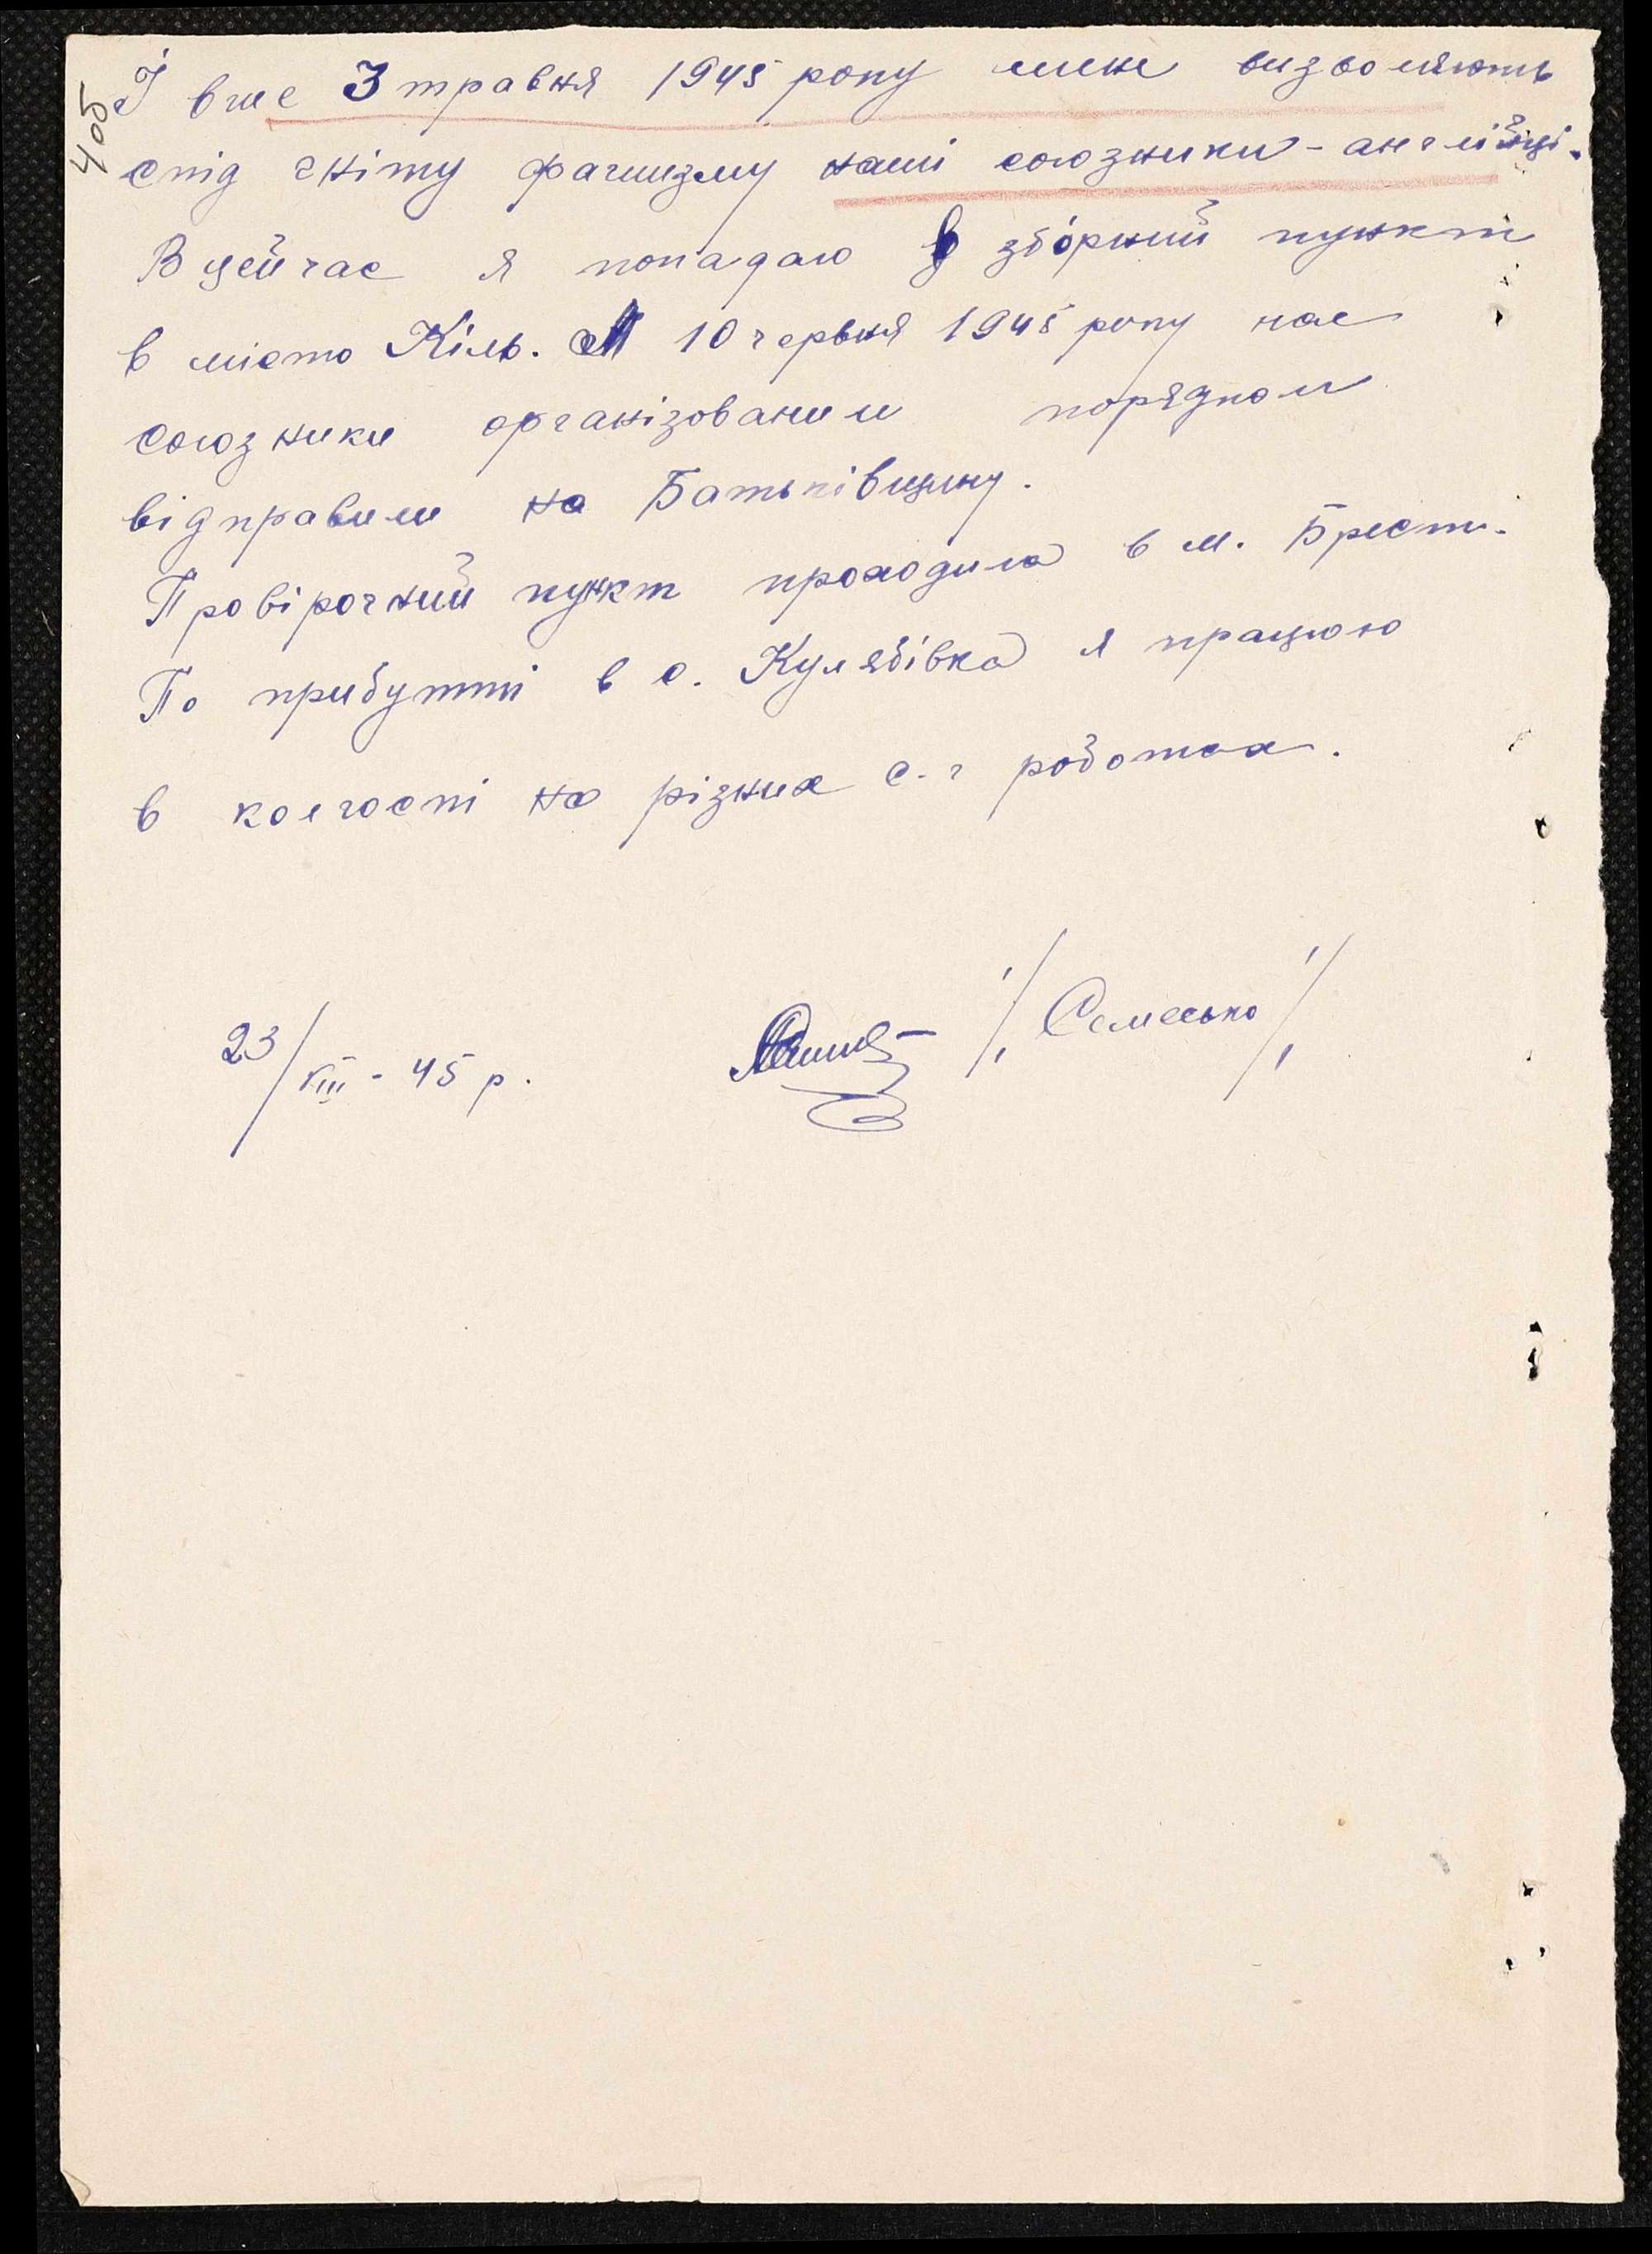 4об
І вже 3 травня 1945 року мене визволяють
спід гніту фашизму наші союзники - англійці.
В цей час я попадаю в збо́рний пункт
в місто Кіль. 10 червня 1945 року нас
союзники організованим порядком
відправили на Батьківщину.
Провірочний пункт проходила в м. Брест.
По прибутті в с. Кулябівка я працюю
в колгоспі на різних с-г роботах.
23/VIII - 45 р. /Семесько/